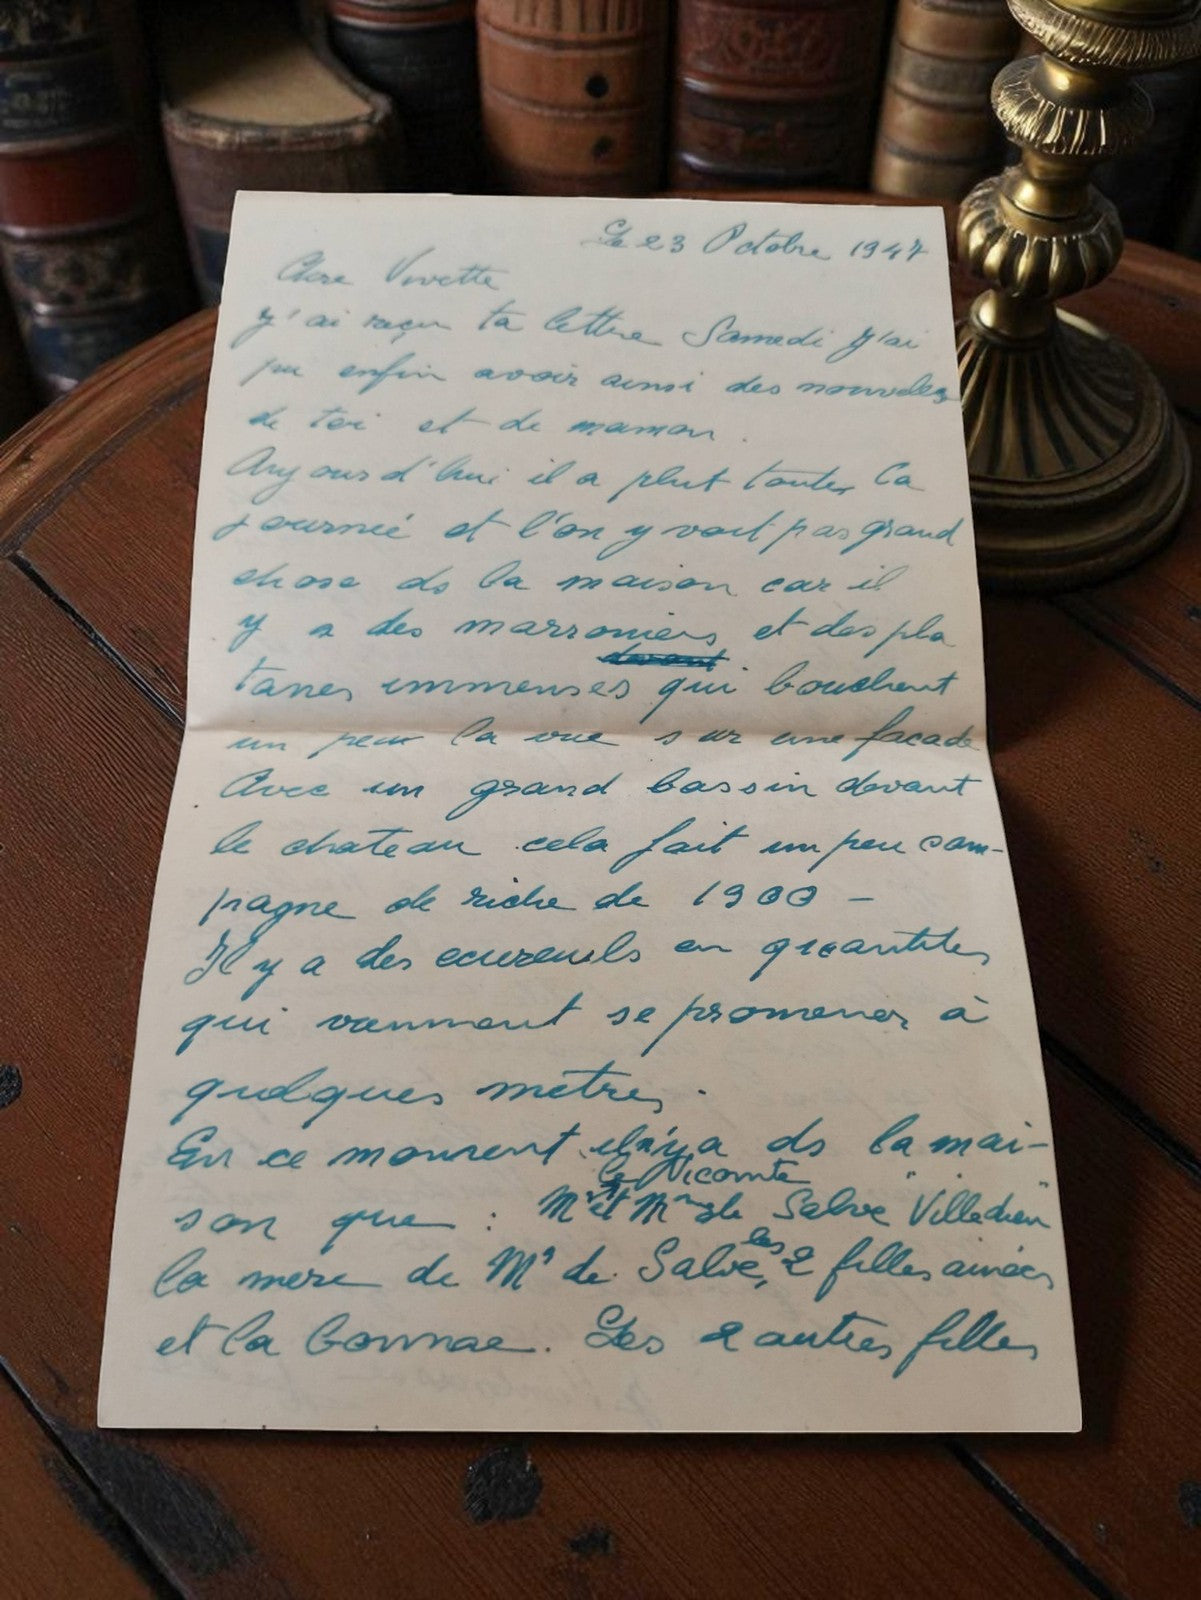 Le 23 Octobre 1947
Chere Vivette
J'ai reçu ta lettre Samedi J'ai
pu enfin avoir ainsi des nouvelles
de toi et de maman.
Aujourd'hui il a plut toutes la
journeé et l'on y voit pas grand
chose ds la maison car il
y a des marroniers et des pla
devant
tanes immenses qui bouchent
un peu la vue sur une façade
Avec un grand bassin devant
le chateau cela fait un peu cam-
pagne de riche de 1900 -
Il y a des ecureuils en quantites
qui viennment se promener à
quelques mètres.
En ce moment il n'y a ds la mai-
le Vicomte
son que : Mr et Mme de Salve "Villedieu"
les
la mere de Mr de Salve, 2 filles ainées
et la bonnae. Les 2 autres filles